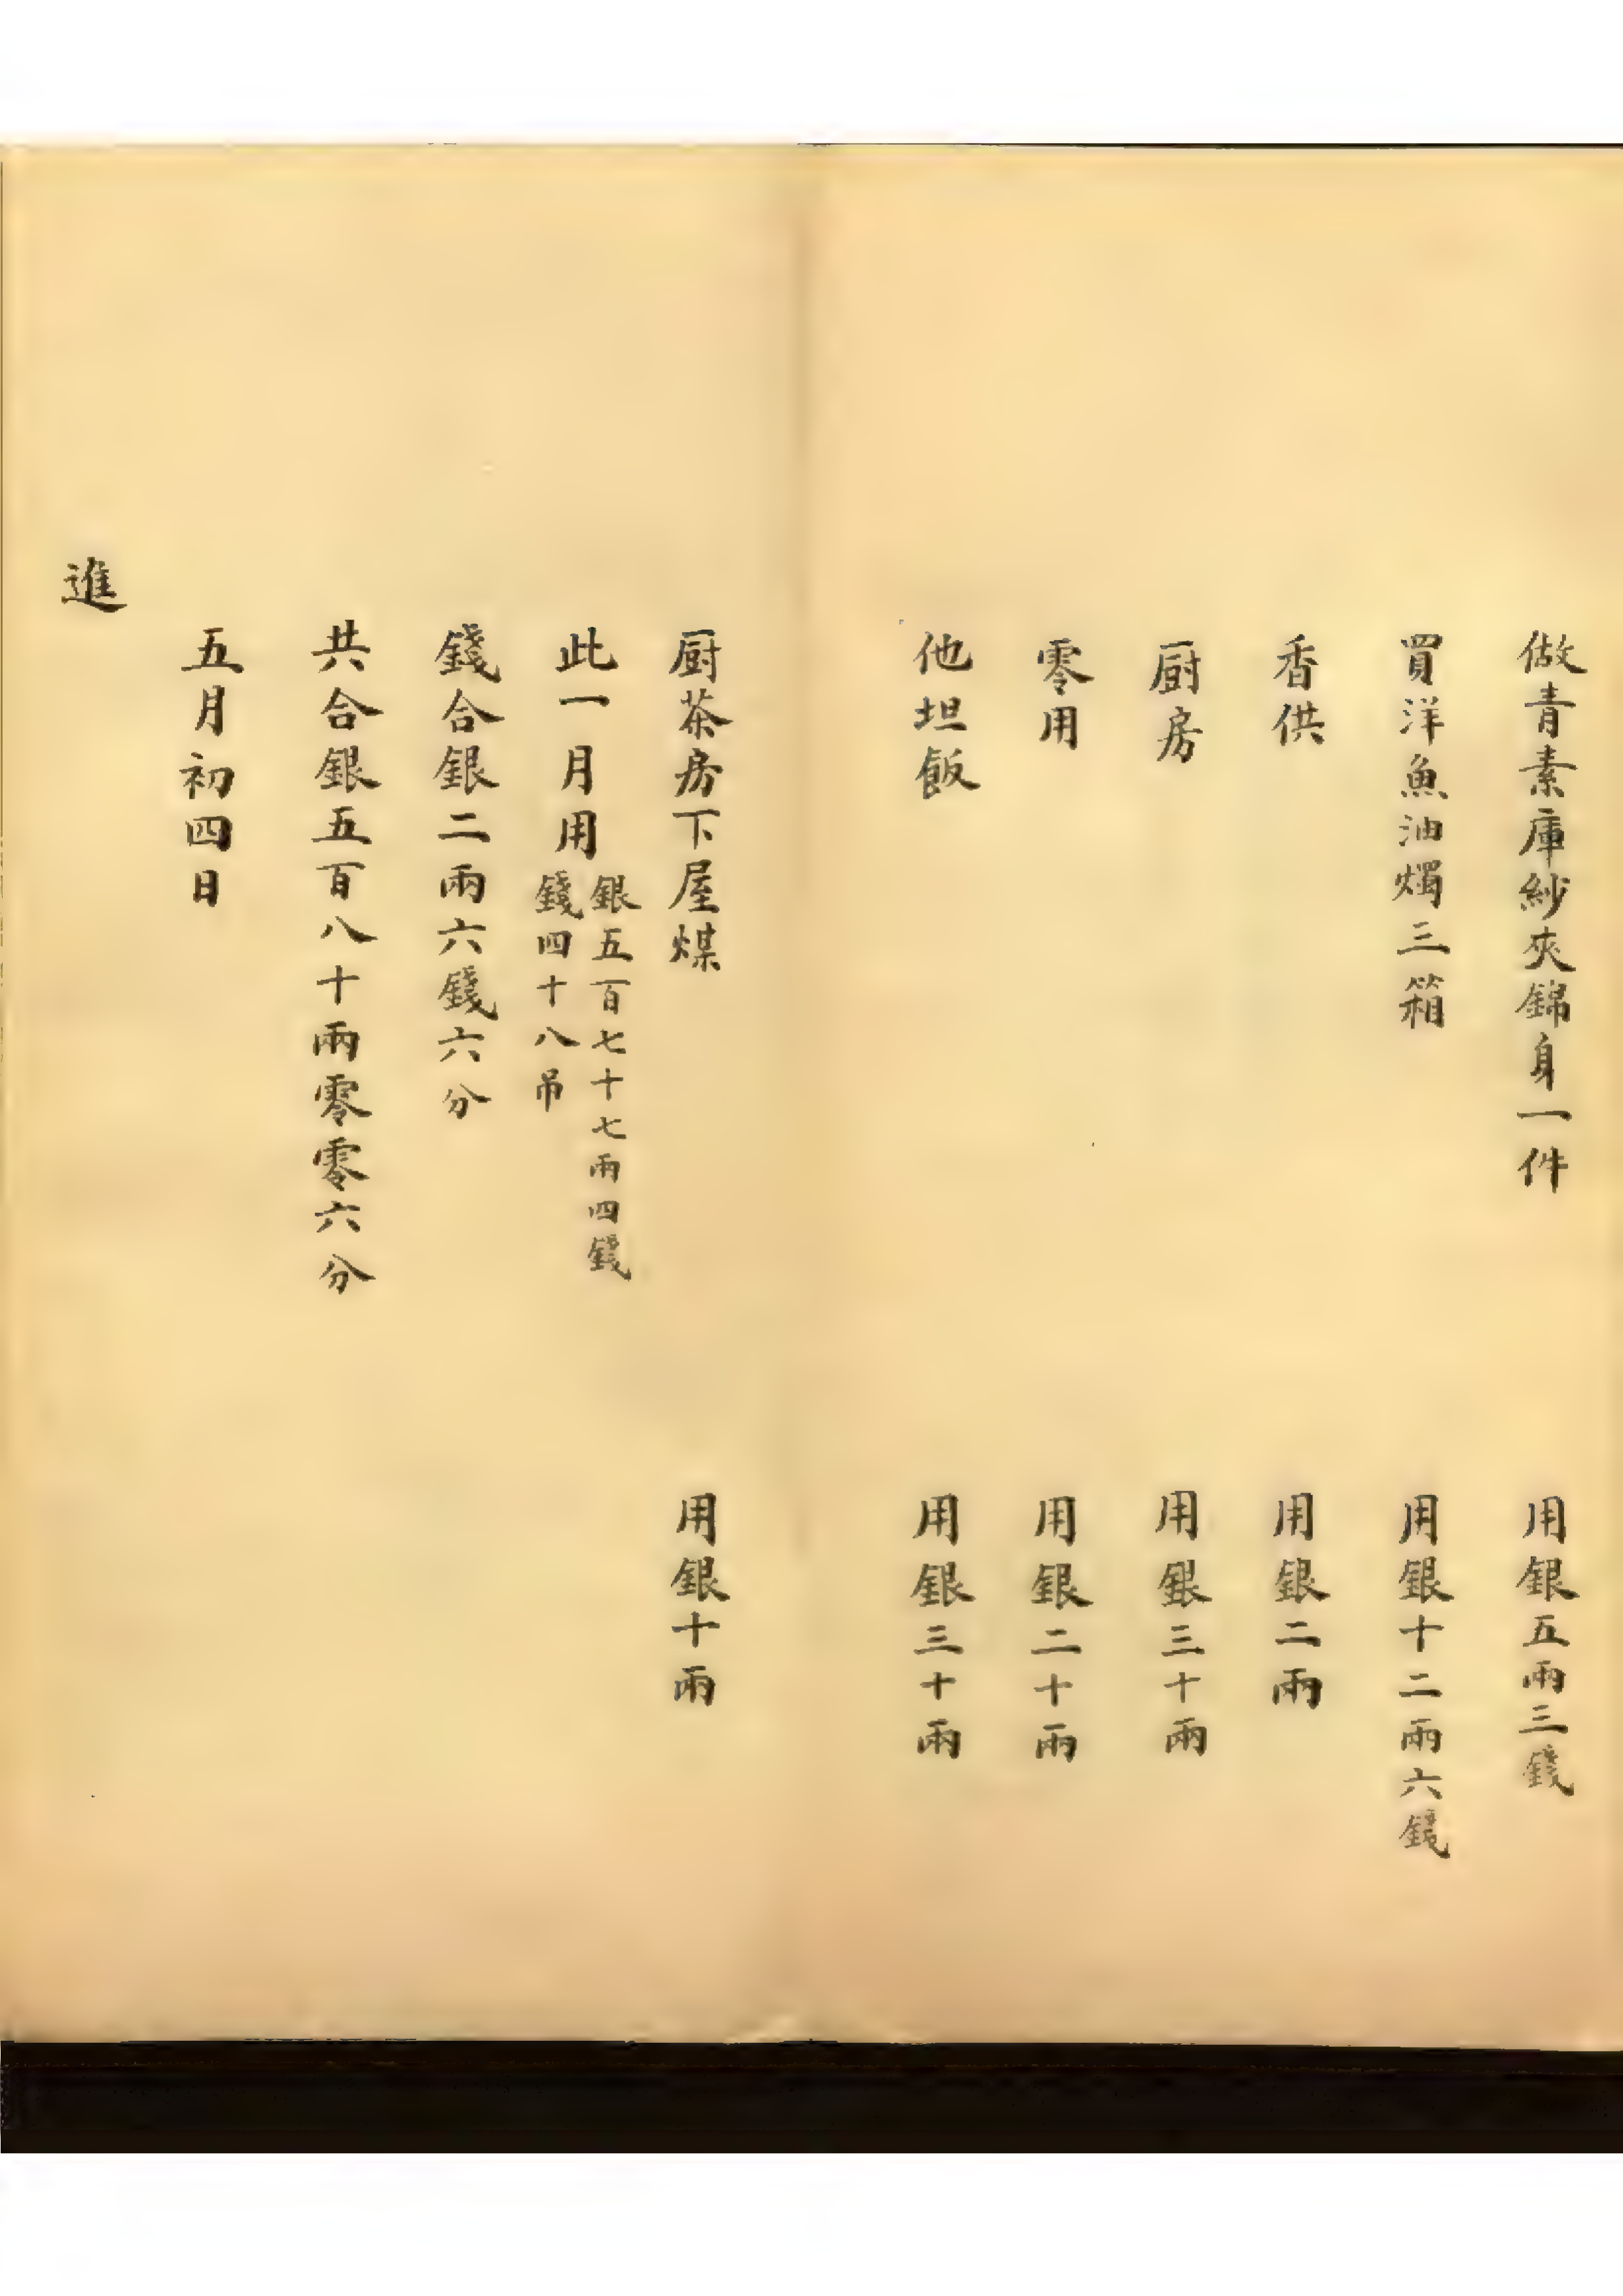 做青素庫紗夾錦身一件 用銀五兩三錢
買洋魚油燭三箱 用銀十二兩六錢
香供 用銀二兩
厨房 用銀三十兩
零用 用銀二十兩
他坦飯 用銀三十兩
厨茶房下屋煤 用銀十兩
此一月用 銀五百七十七兩四錢 錢四十八吊
錢合銀二兩六錢六分
共合銀五百八十兩零零六分
五月初四日
進